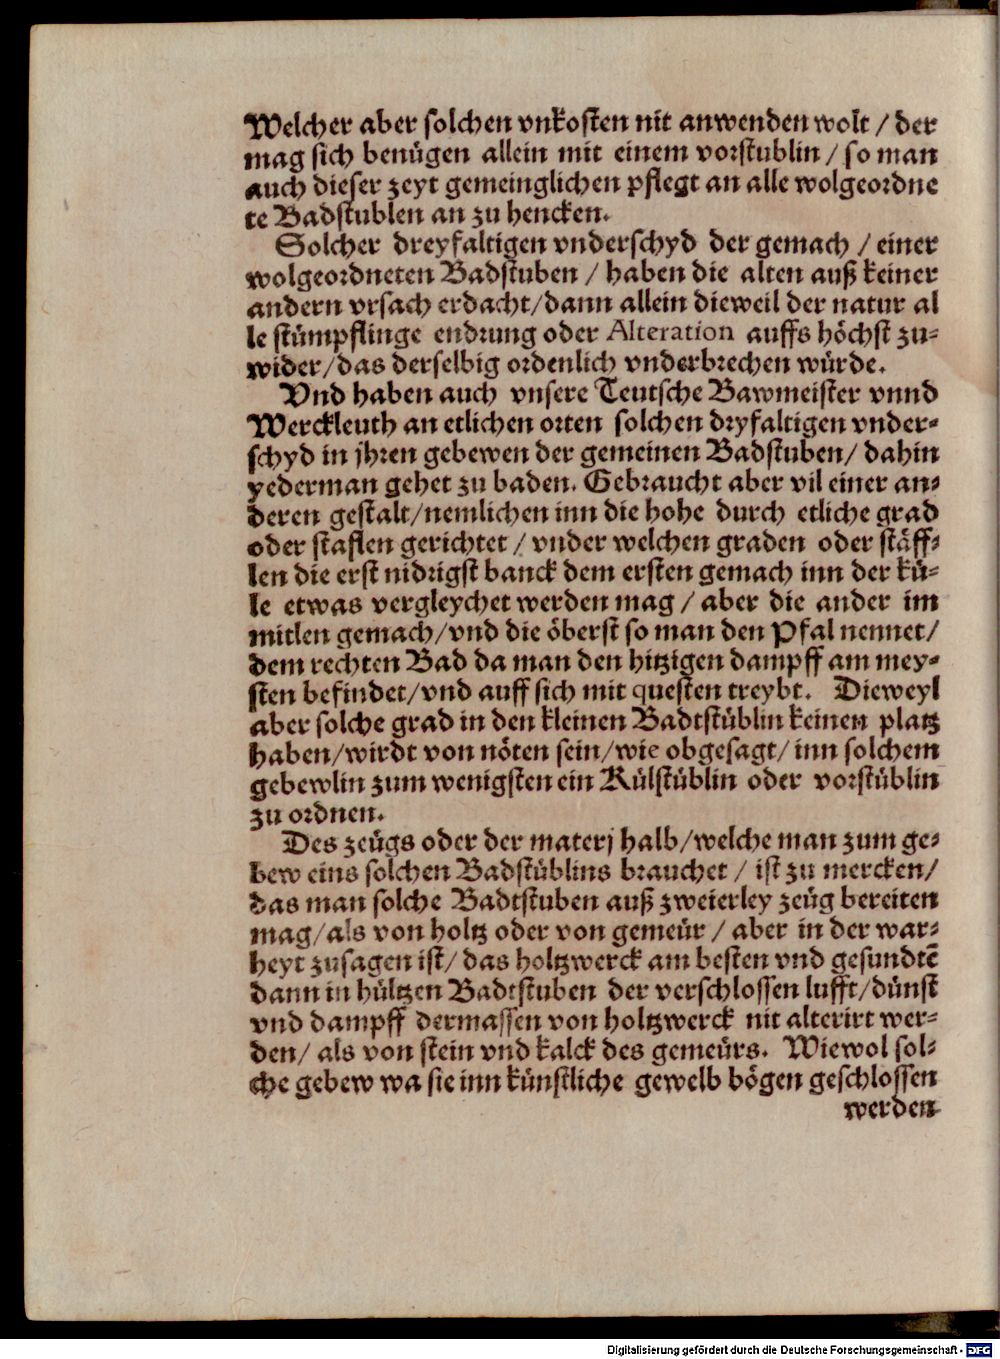 Welcher aber solchen vnkosten nit anwenden wolt / der
mag sich benügen allein mit einem vorstublin / so man
auch dieser zeyt gemeinglichen pflegt an alle wolgeordne
te Badstublen an zu hencken.
Solcher dreyfaltigen vnderschyd der gemach / einer
wolgeordneten Badstuben / haben die alten auß keiner
andern vrsach erdacht/dann allein dieweil der natur al
le stümpflinge endrung oder Alteration auffs höchst zu-
wider/das derselbig ordenlich vnderbrechen würde.
Vnd haben auch vnsere Teutsche Bawmeister vnnd
Werckleuth an etlichen orten solchen dryfaltigen vnder-
schyd in jhren gebewen der gemeinen Badstuben/ dahin
yederman gehet zu baden. Gebraucht aber vil einer an-
deren gestalt/nemlichen inn die hohe durch etliche grad
oder staflen gerichtet / vnder welchen graden oder stäff-
len die erst nidrigst banck dem ersten gemach inn der kü-
le etwas vergleychet werden mag / aber die ander im
mitlen gemach/vnd die öberst so man den Pfal nennet/
dem rechten Bad da man den hitzigen dampff am mey-
sten befindet/vnd auff sich mit questen treybt. Dieweyl
aber solche grad in den kleinen Badtstüblin keinen platz
haben/wirdt von nöten sein/wie obgesagt/ inn solchem
gebewlin zum wenigsten ein Külstüblin oder vorstüblin
zu ordnen.
Des zeügs oder der materj halb/welche man zum ge-
bew eins solchen Badstüblins brauchet / ist zu mercken/
das man solche Badtstuben auß zweierley zeüg bereiten
mag/als von holtz oder von gemeür / aber in der war-
heyt zusagen ist/ das holtzwerck am besten vnd gesundtē
dann in hültzen Badtstuben der verschlossen lufft/dünst
vnd dampff dermassen von holtzwerck nit alterirt wer-
den/ als von stein vnd kalck des gemeürs. Wiewol sol-
che gebew wa sie inn künstliche gewelb bögen geschlossen
werden
Digitalisierung gefördert durch die Deutsche Forschungsgemeinschaft - DFG